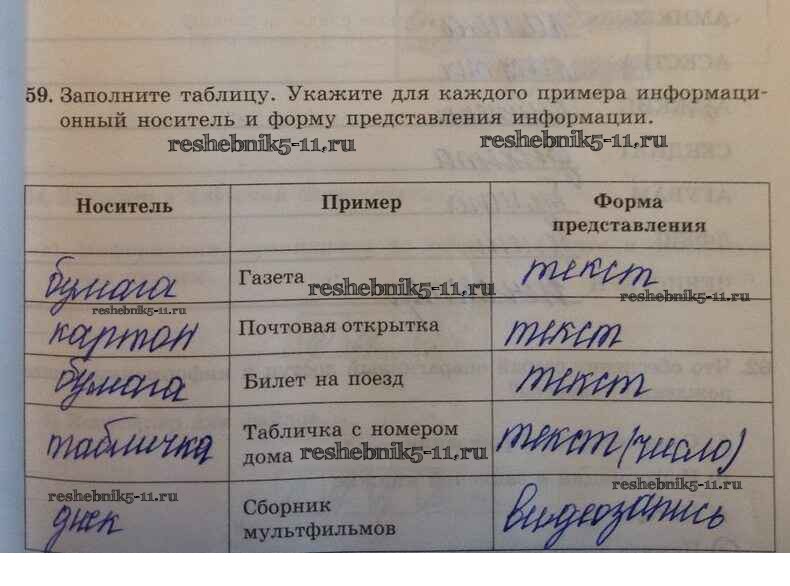 59. Заполните таблицу. Укажите для каждого примера информаци-
онный носитель и форму представления информации.
reshebnik5-11.ru reshebnik5-11.ru
Носитель Пример Форма
представления
бумага Газета reshebnik5-11.ru текст
reshebnik5-11.ru reshebnik5-11.ru
картон Почтовая открытка текст
бумага Билет на поезд текст
табличка Табличка с номером текст (число)
дома reshebnik5-11.ru
reshebnik5-11.ru reshebnik5-11.ru
диск Сборник видеозапись
мультфильмов